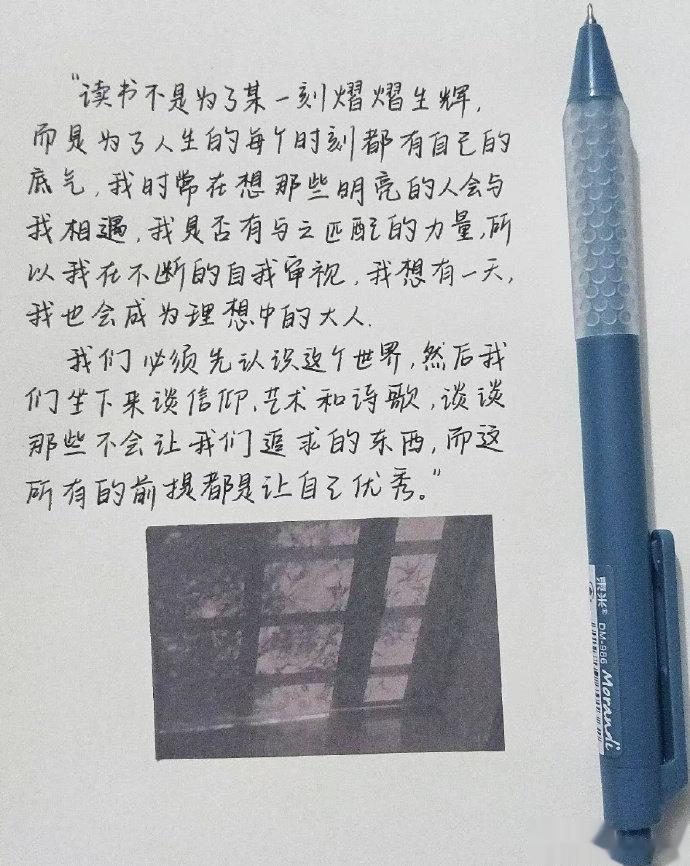 “读书不是为了某一刻熠熠生辉，
而是为了人生的每个时刻都有自己的
底气，我时常在想那些明亮的人会与
我相遇，我是否有与之匹配的力量，所
以我在不断的自我审视，我想有一天，
我也会成为理想中的大人．
我们必须先认识这个世界，然后我
们坐下来谈信仰、艺术和诗歌，谈谈
那些不会让我们追求的东西，而这
所有的前提都是让自己优秀。”
DM-986 Morandi